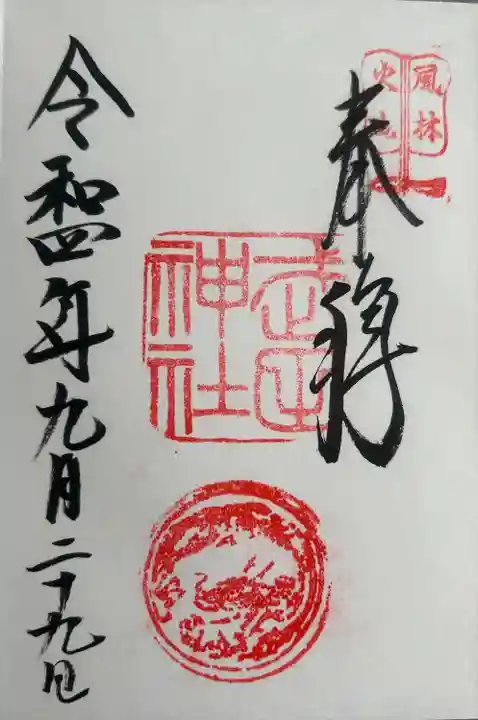 風林
火山
奉拝
神社
令和四年九月二十九日